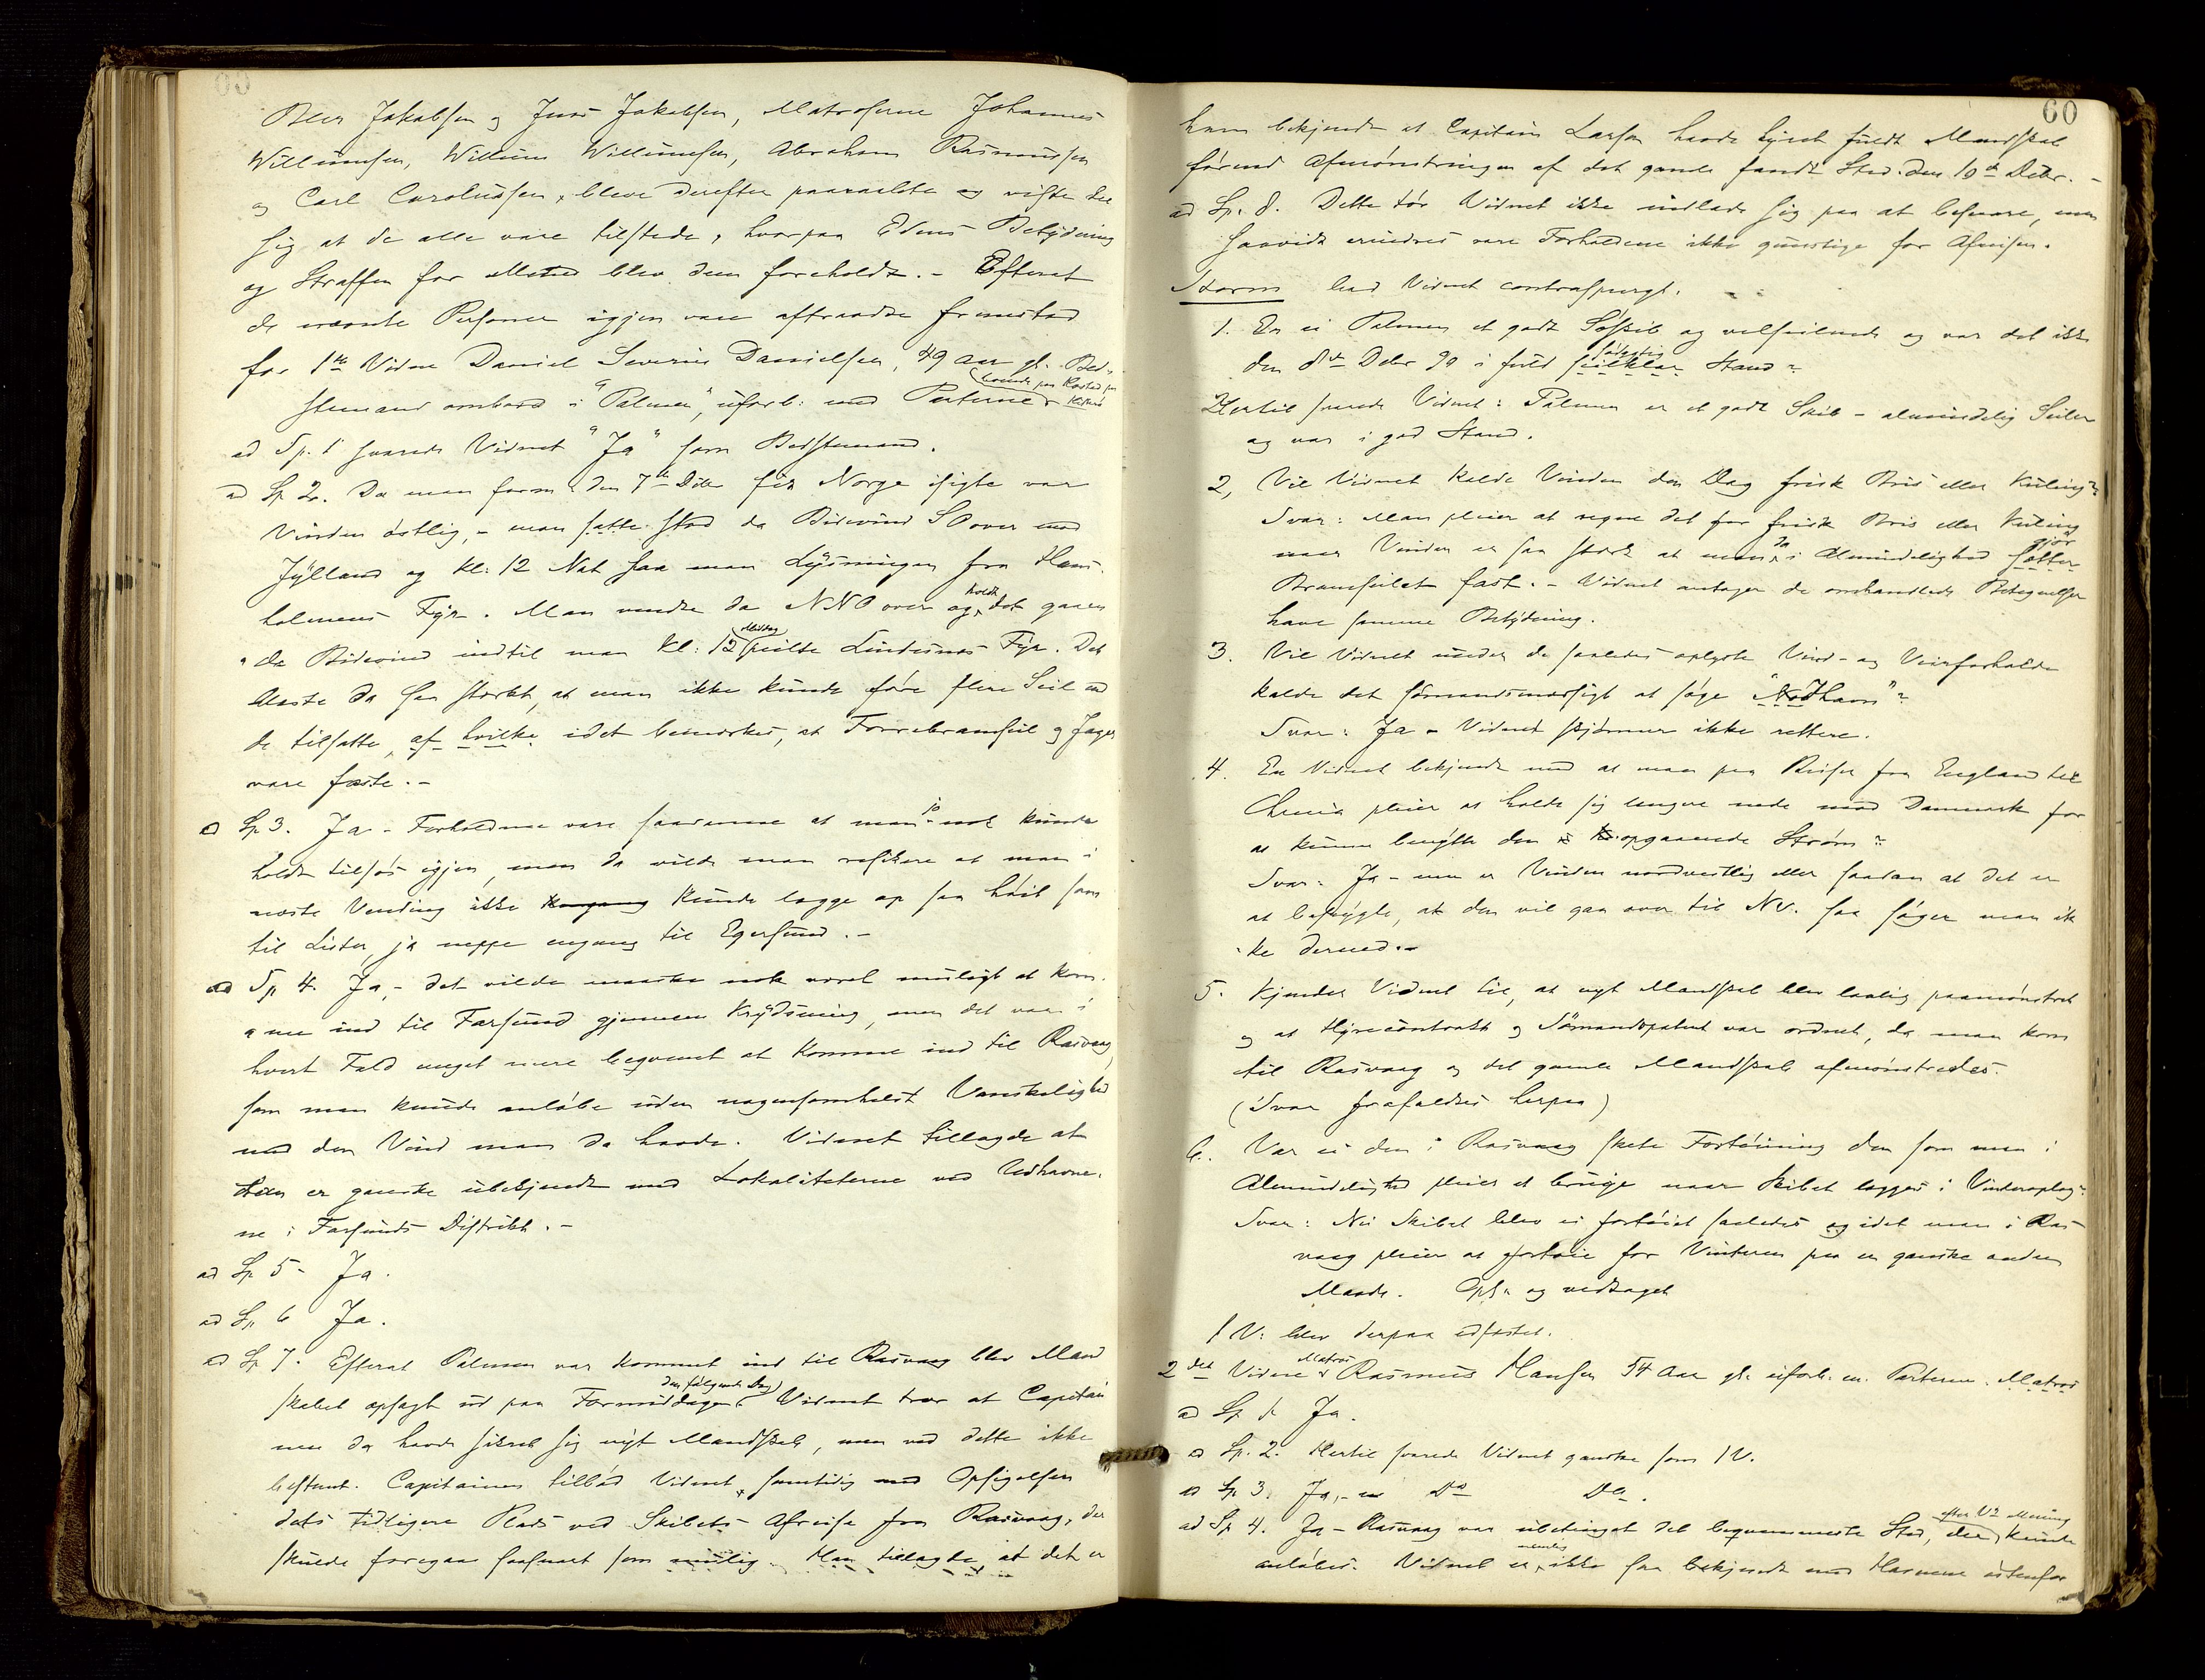 Peer Jakobsen og Jens Jakobsen, Matroserne Johannes
Willumsen, Willum Willumsen, Abraham Rasmussen
og Carl Caroliussen, bleve derefter paaraabte og viste det
sig at de alle vare tilstede, hvorpaa Edens Betydning
og Straffen for Mened blev dem foreholdt. - Efterat
de nævnte Personer igjen vare aftraadte fremstod
for 1ste Vidne Daniel Severin Danielsen, 49 Aar gl. Bed-
boende paa
stemand ombord i "Palmen", uforb: med Parterne
ad Sp. 1 svarede Vidnet "Ja" som Bedstemand.
ad Sp 2. Da man den 7de Dcbr fik Norge isigte var
Vinden østlig, - man satte stod da Bidevind SO over mod
Jylland og kl: 12 Nat saa man Lysningen fra Hans-
holdt
holmens Fyr. Man vendte da NNO over og det gaaen
Middag
de Bidevind indtil man kl: 12 peilte Lindesnæs Fyr. Det
blæste da saa stærkt, at man ikke kunde føre flere Seil end
de tilsatte, af hvilke idet bemærkes, at Forrebramseil og Jager
vare faste. -
ad Sp 3. Ja - Forholdene vare saadanne at man jo nok kunde
holdt tilsøs igjen, men da vilde man risikere at man i
næste Vending ikke kunde lægge op saa høit som
til Lister, ja neppe engang til Egersund. -
ad Sp 4. Ja, - det vilde maaske nok været muligt at kom-
me ind til Farsund gjennem Krydsning, men det var i
hvert Fald meget mere beqvemt at komme ind til Rasvaag,
som man kunde anløbe uden nogensomhelst Vanskelighed
med den Vind man da havde. Vidnet tillagde at
han er ganske ubekjendt med Lokaliteterne ved Udhavne-
ne i Farsunds Distrikt. -
ad Sp 5 - Ja.
ad Sp 6 Ja.
ad Sp 7. Efterat Palmen var kommet ind til Rasvaag blev Mand
den følgende Dag
skabet opsagt ud paa Formiddagen. Vidnet tror at Capitai
nen da havde sikret sig nyt Mandskab, men ved dette ikke
bestemt. Capitainen tilbød Vidnet samtidig med Opsigelsen
dets tidligere Plads ved Skibets Afreise fra Rasvaag, der
skulde foregaa saasnart som mulig. Han tillagte, at det er
60
ham bekjendt at Capitain Larsen havde hyret fuldt Mandskab
førend Afmønstringen af det gamle fandt Sted den 10de Dcbr. -
ad Sp. 8. Dette tør Vidnet ikke indlade sig paa at besvare, men
saavidt erindres vare Forholdene ikke gunstige for Afreisen.
Storm lod Vidnet contraspurgt.
1. Er ei Palmen et godt Søskib og velseilende og var det ikke
den 8de Dcbr 90 i fuld seilklar Stand?
Hertil svarede Vidnet: Palmen er et godt Skib - almindelig Seiler
og var i god Stand.
2, Vil Vidnet kalde Vinden den Dag frisk Bris eller Kuling?
Svar: Man pleier at regne det for frisk Bris eller Kuling
naar Vinden er saa stærk at man da i Almindelighed gjør
Bramseilet fast. - Vidnet antager de omhandlede Betegnelser
have samme Betydning.
3. Vil Vidnet under de saaledes oplyste Vind- og Veirforholde
kalde det sømandsmæssigt at søge "Nødhavn"?
Svar: Ja - Vidnet skjønner ikke rettere.
4. Er Vidnet bekjendt med at man paa Reiser fra England til
Chra pleier at holde sig længere nede mod Danmark for
at kunne benytte den opgaaende Strøm?
Svar: Ja - men er Vinden nordvestlig eller saadan at det er
at befrygte, at den vil gaa over til NV. saa søger man ik
ke derned. -
5. Kjender Vidnet til, at nyt Mandskab blev lovlig paamønstret
og at Hyrecontrakt og Sømandspatent var ordnet, da man kom
til Rasvaag og det gamle Mandskab afmønstredes.
(Svar frafaldtes herpaa)
6. Var ei den i Rasvaag skete Fortøining den som man i
Almindelighed pleier at bruge naar Skibet lægges i Vinteroplag?
Svar: Nei Skibet blev ei fortøiet saaledes og idet man i Ras-
vaag pleier at fortøie for Vinteren paa en ganske anden
Maade. Opl. og vedtaget
1 V. blev derpaa edfæstet.
Matros
2det Vidne Rasmus Hansen 54 Aar gl. uforb. m. Parterne. Matros
ad Sp 1 Ja.
ad Sp. 2. Hertil svarede Vidnet ganske som 1 V.
ad Sp 3. Ja, - Do Do.
efter Vs Mening
ad Sp 4. Ja - Rasvaag var ubetinget det beqvemmeste Sted, der kunde
nemlig
anløbes. Vidnet er ikke saa bekjendt med Havnene østenfor